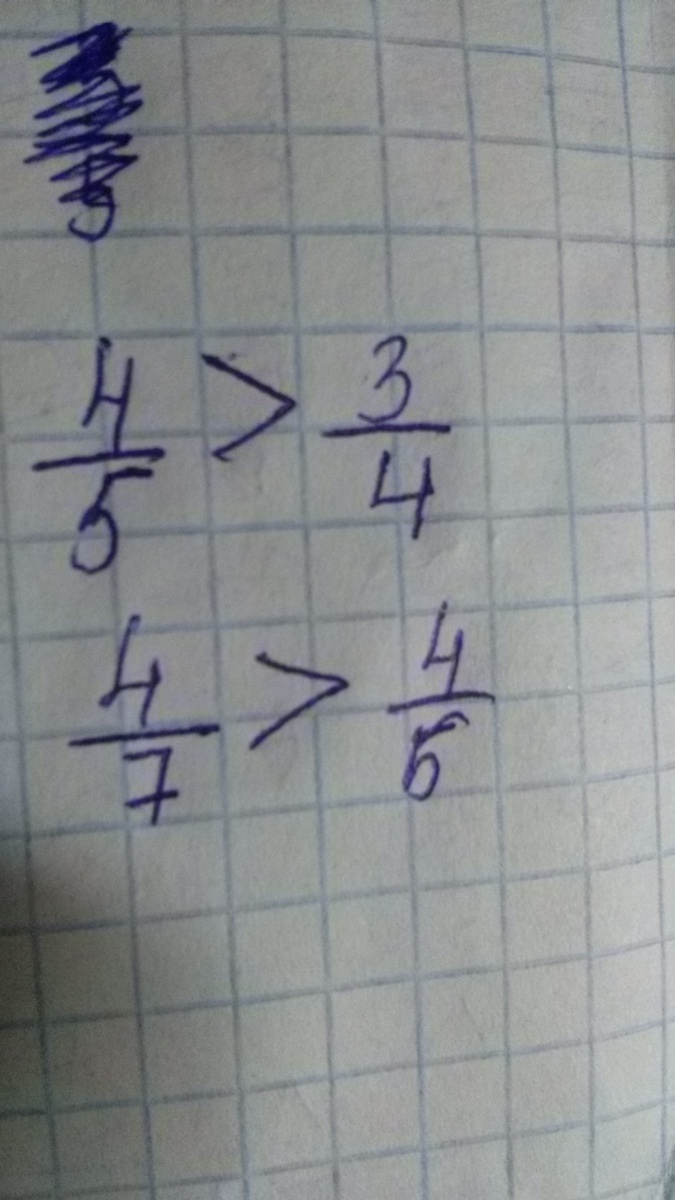 4/5 > 3/4
4/7 > 4/5